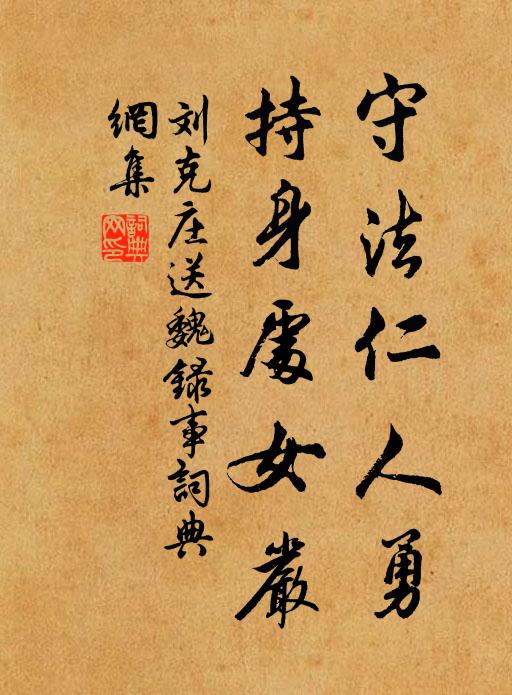 守法仁人勇
持身處女嚴
刘克庄送魏錄事詞典
網集
詞典
网印